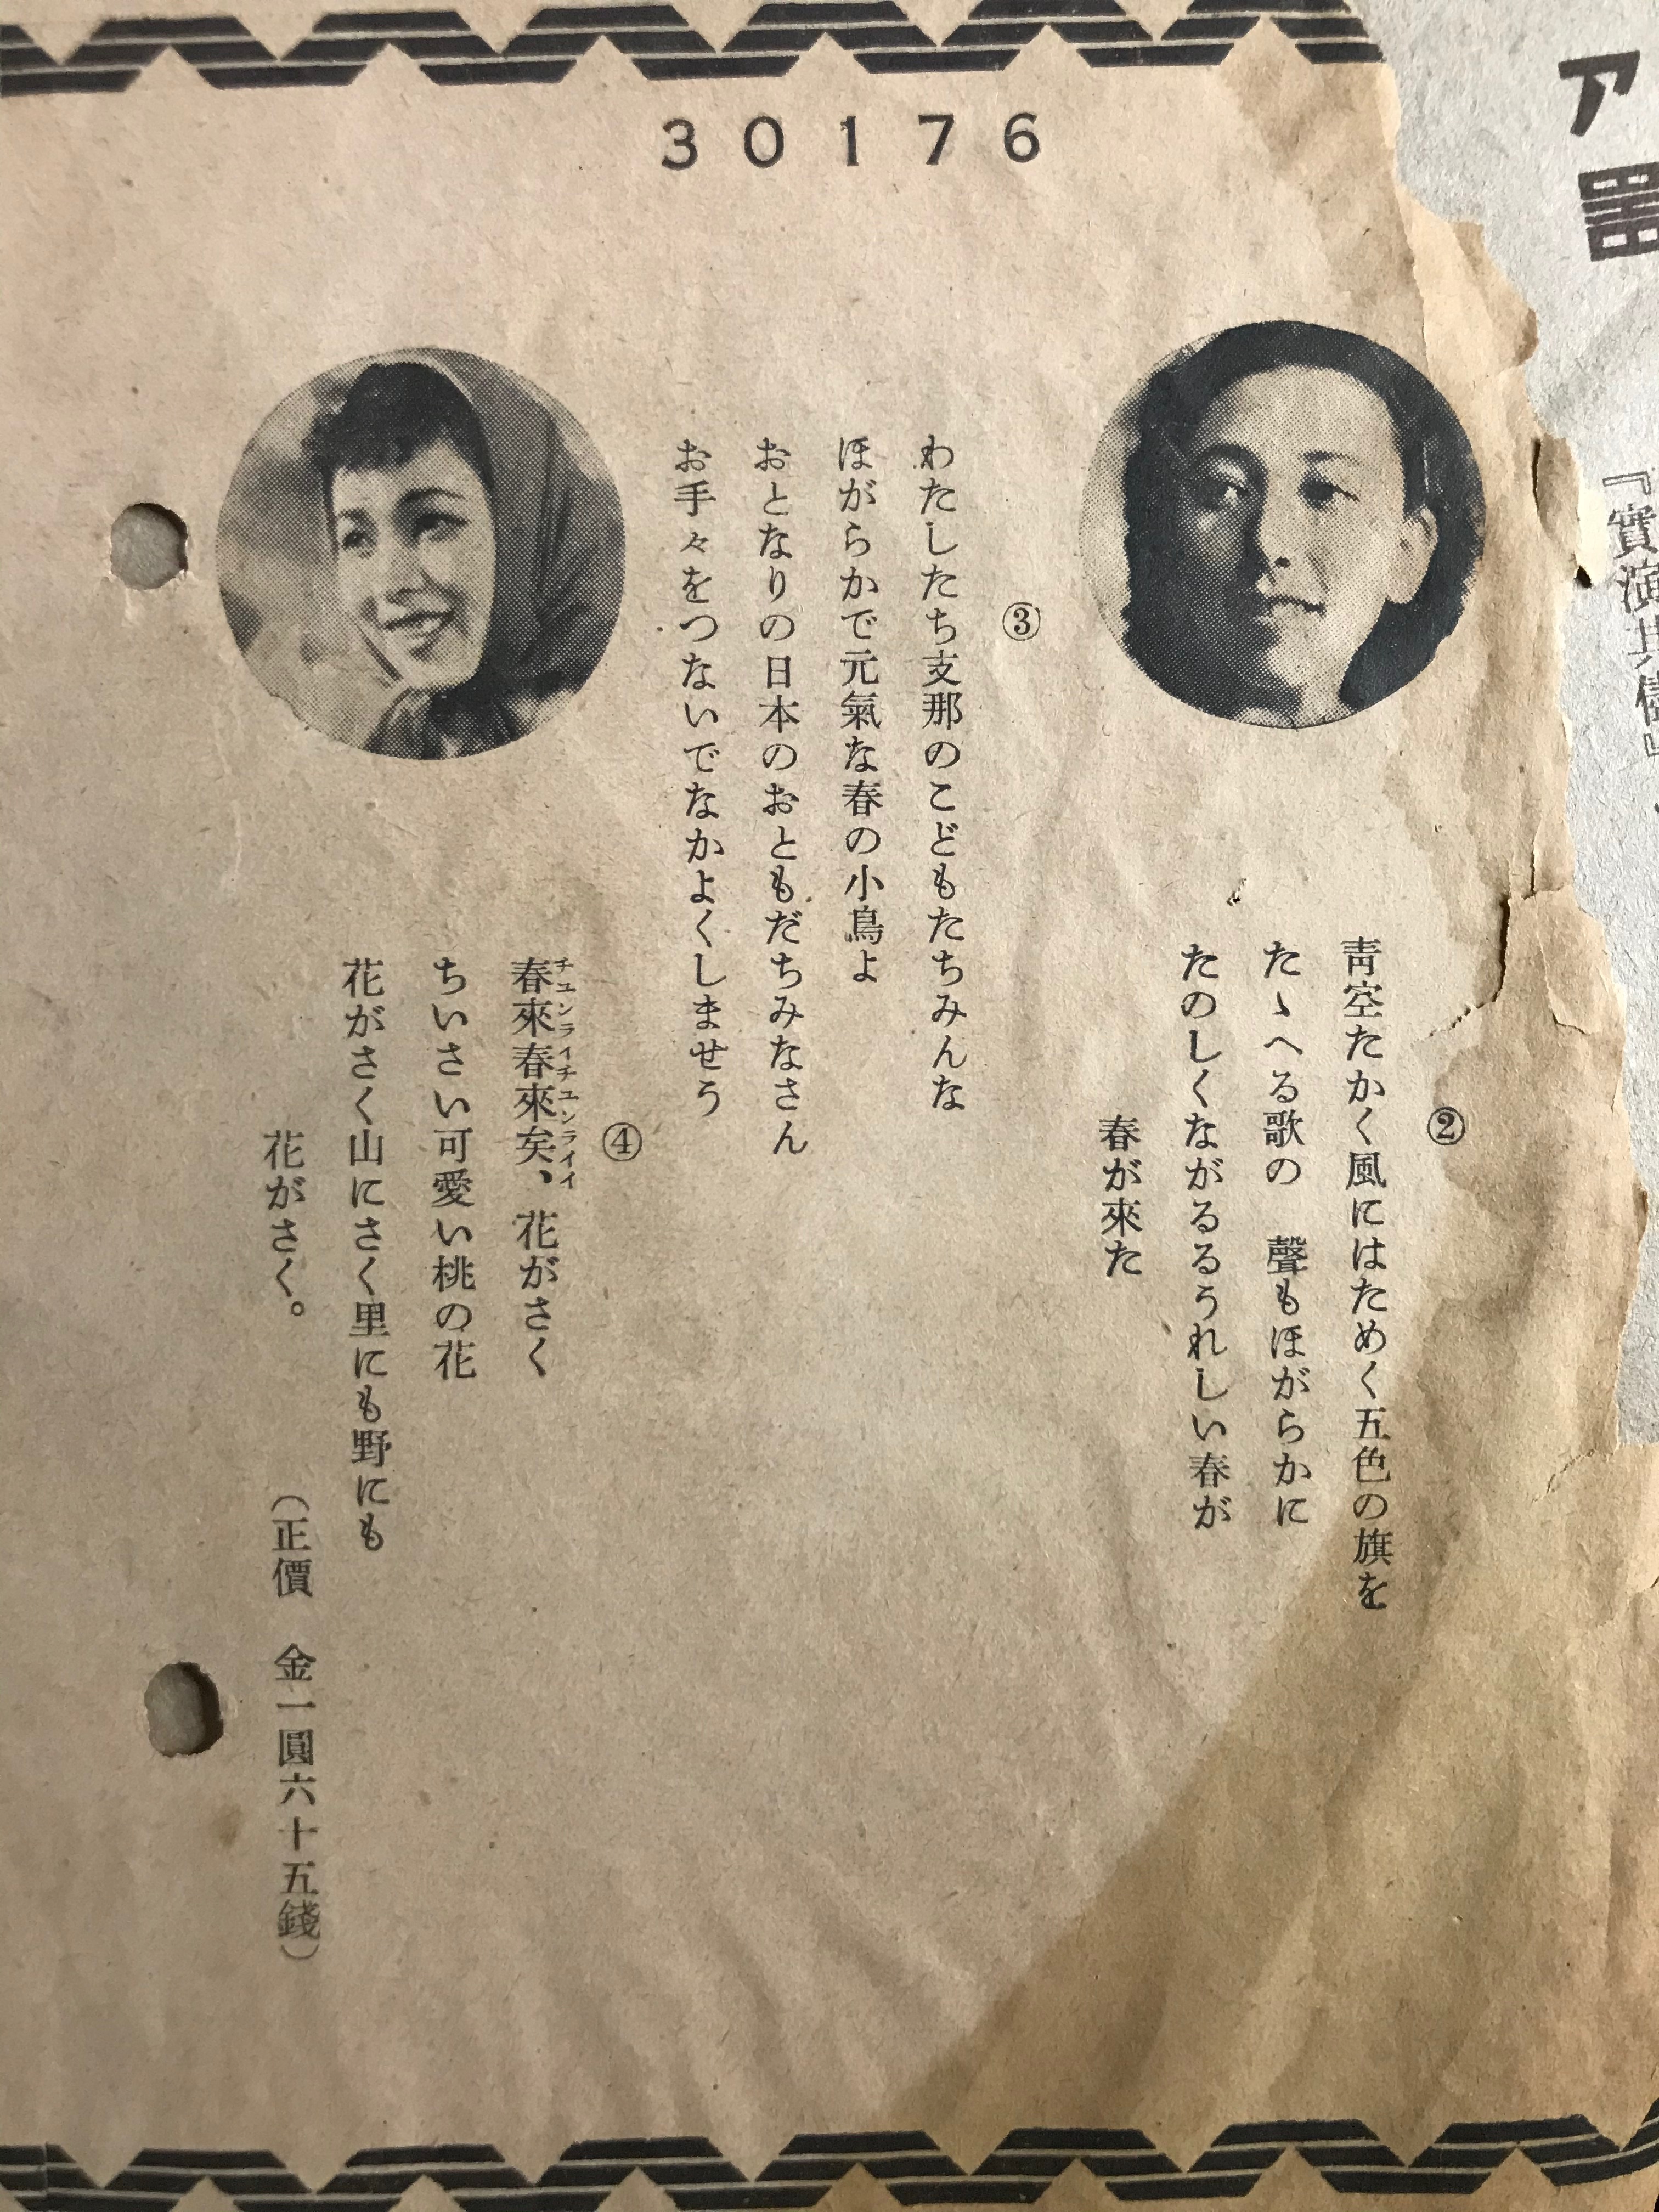 30176
②
靑空たかく風にはためく五色の旗を
たゝへる歌の　聲もほがらかに
たのしくながるるうれしい春が
春が來た
③
わたしたち支那のこどもたちみんな
ほがらかで元氣な春の小鳥よ
おとなりの日本のおともだちみなさん
お手々をつないでなかよくしませう
④
チユンライチユンライイ
春來春來矣、花がさく
ちいさい可愛い桃の花
花がさく山にさく里にも野にも
花がさく。
（正價　金一圓六十五錢）
ア
『實演共